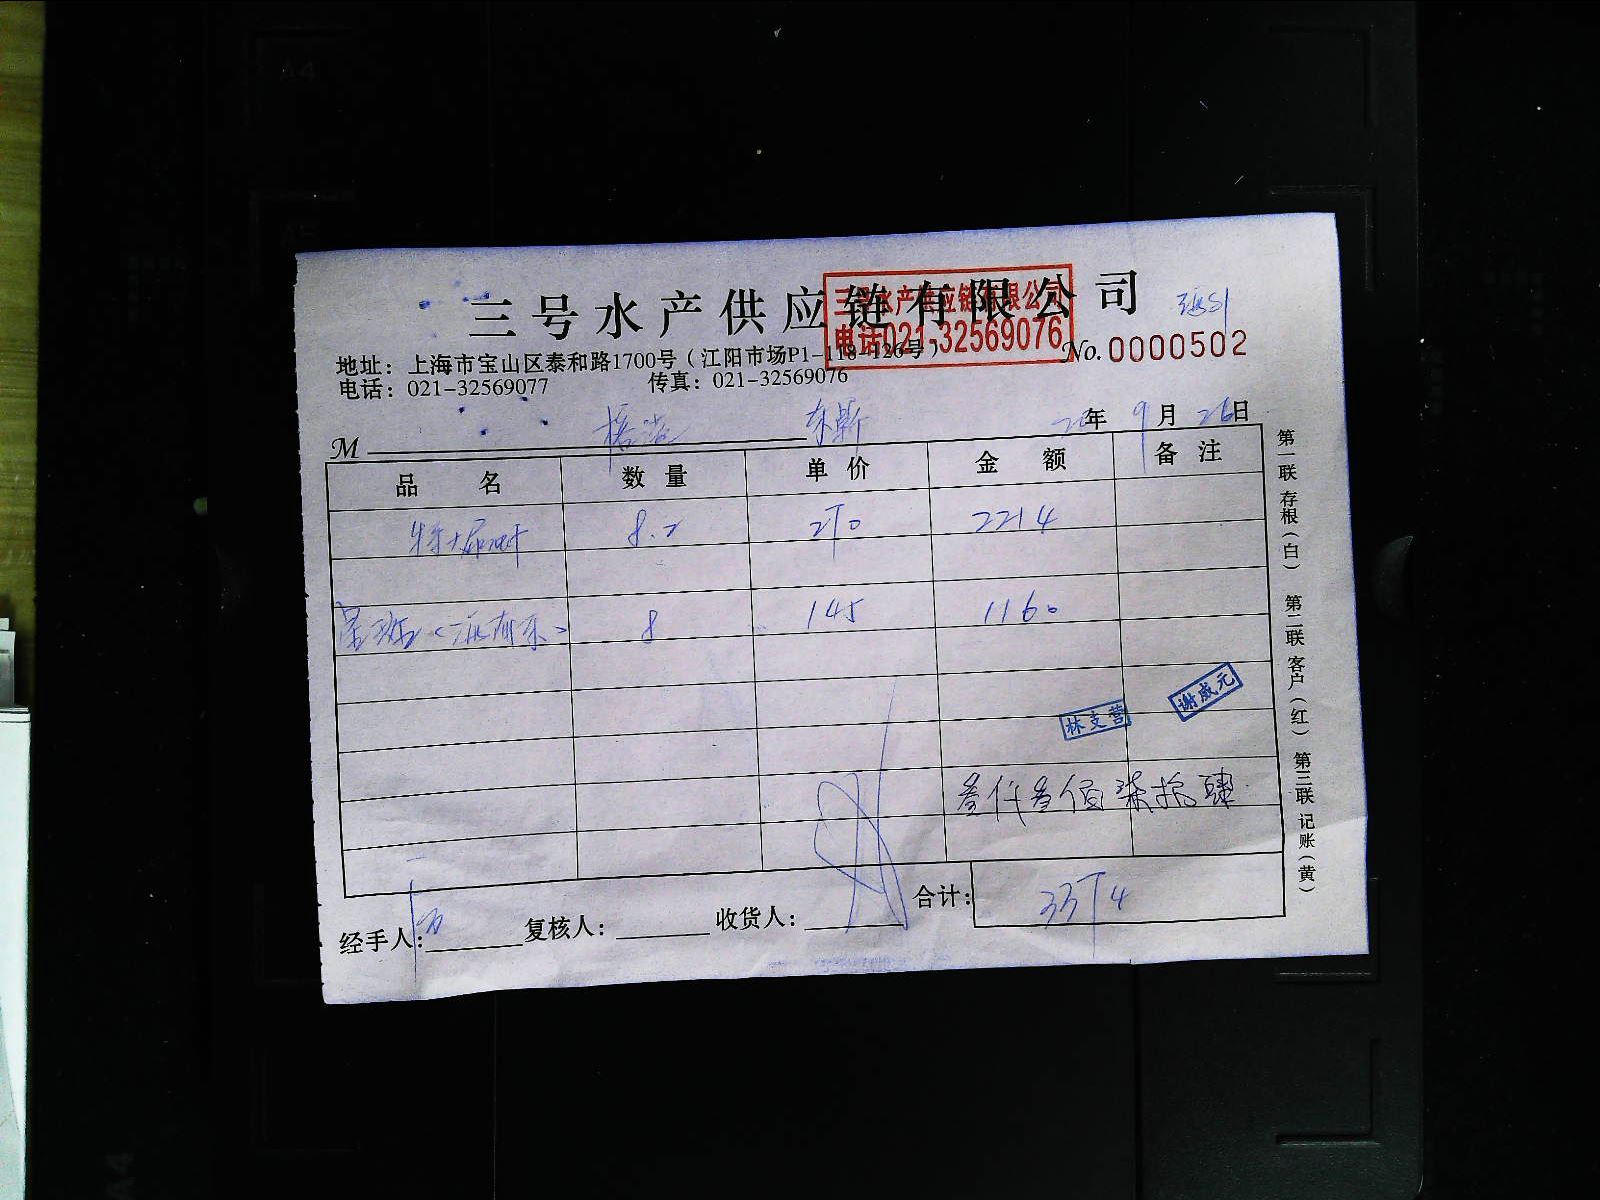 三号水产供应链有限公司
三号水产供应链有限公司
电话021-32569076
地址：上海市宝山区泰和路1700号（江阳市场P1-118-126号）
No.0000502
电话：021-32569077 传真：021-32569076
M 20年 9月 26日
品 名 数 量 单 价 金 额 备 注
8.2 270 2214
8 145 1160
林支营
谢成元
叁仟叁佰柒拾肆
合计：3374
经手人： 复核人： 收货人：
第一联 存根（白） 第二联 客户（红） 第三联 记账（黄）